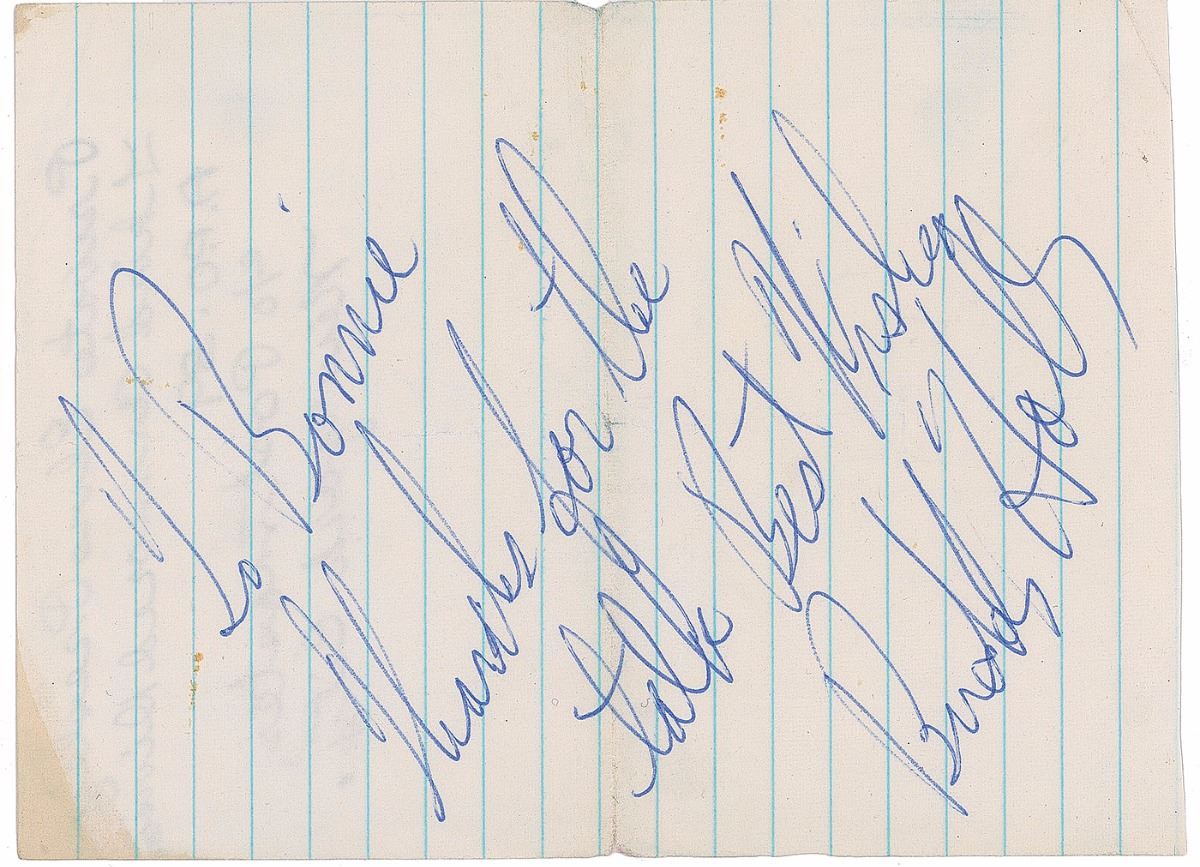 To Bonnie
Thanks for the
talk
Best Wishes
Buddy Holly